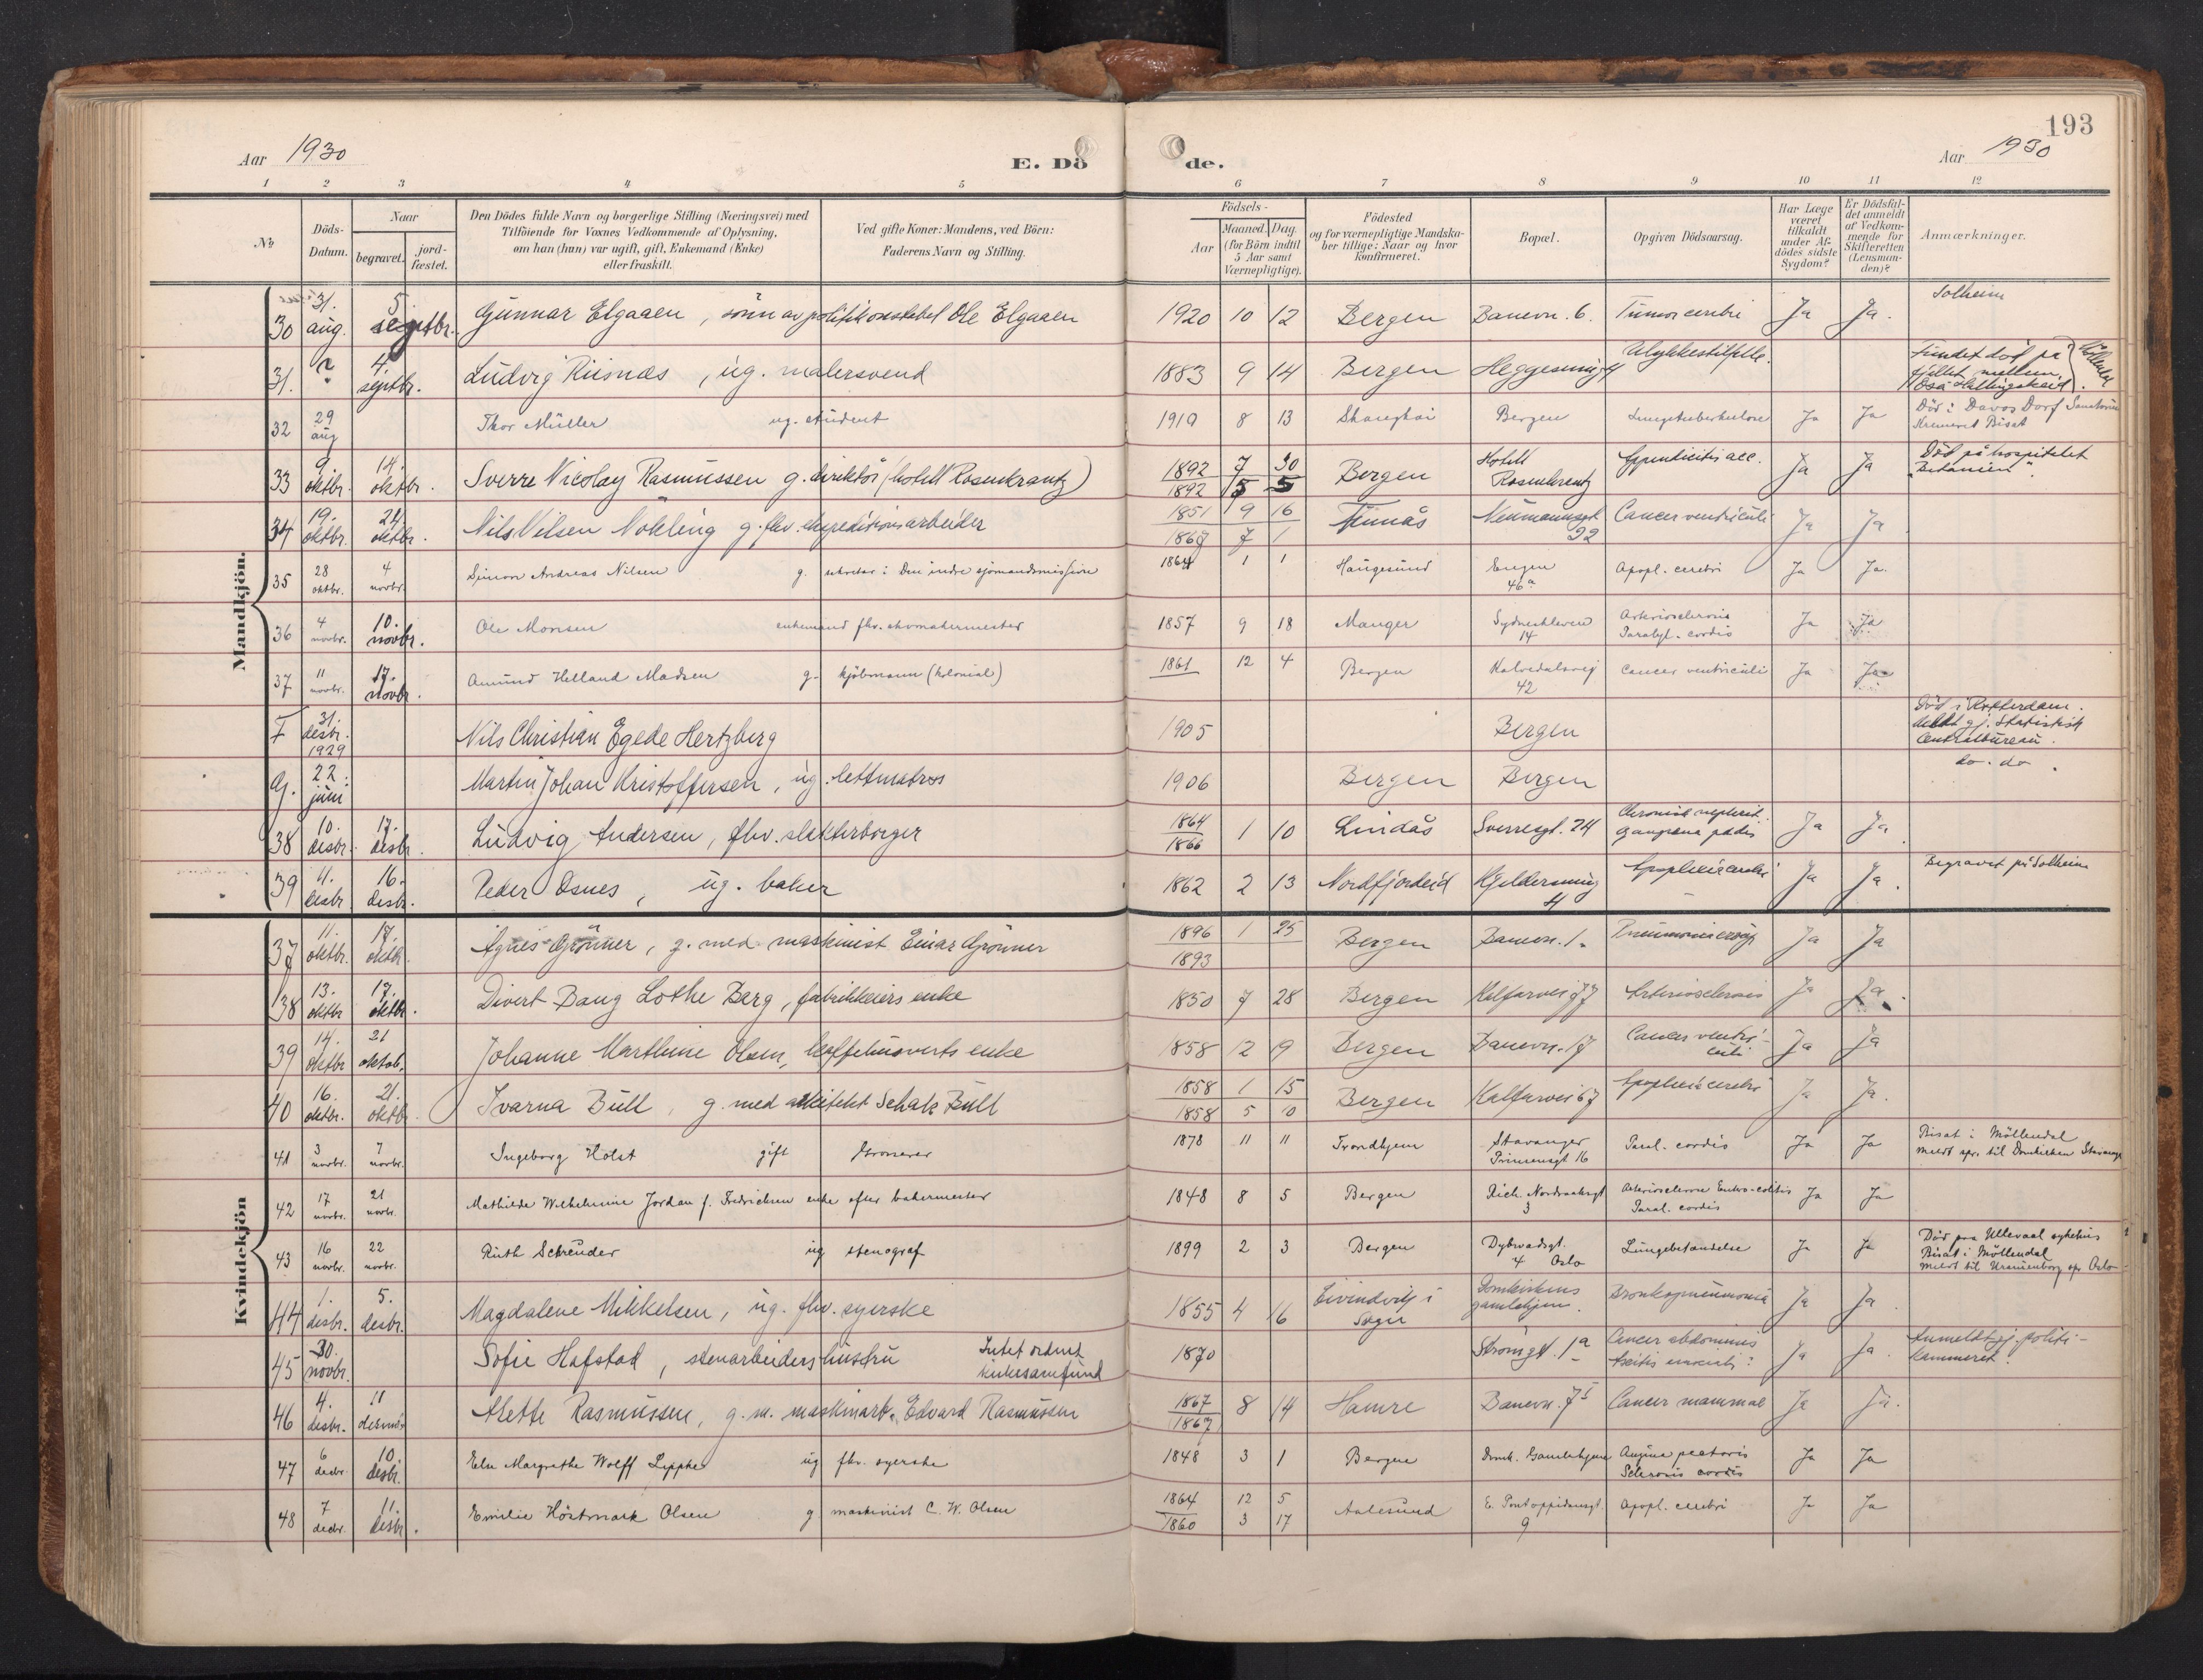 193
Aar 1930 E. Dö de. Aar 1930
1 2 3 4 5 6 7 8 9 10 11 12
№ Döds-Datum. Naar begravet. jord-fæstet. Den Dödes fulde Navn og borgerlige Stilling (Næringsvei) med Tilföiende for Voxnes Vedkommende af Oplysning, om han (hun) var ugift, gift, Enkemand (Enke) eller fraskilt. Ved gifte Koner: Mandens, ved Börn: Faderens Navn og Stilling. Födsels- Aar Maaned. Dag. (for Börn indtil 5 Aar samt Værnepligtige). Födested og for værnepligtige Mandskaber tillige: Naar og hvor konfirmeret. Bopæl. Opgiven Dödsaarsag. Har Læge været tilkaldt under Afdödes sidste Sygdom? Er Dödsfaldet anmeldt af Vedkommende for Skifteretten (Lensmanden)? Anmærkninger.
Mandkjön.
30 31. aug. 5 septbr. Gunnar Elgaaen, sönn av politikonstabel Ole Elgaaen 1920 10 12 Bergen Banevn. 6. Tumor cerebri Ja Ja. Solheim
31. ? 4. septbr. Ludvig Riisnæs, ug. malersvend 1883 9 14 Bergen Ulykkestilfelle. Fundet död på fjellet mellem Osa - Hallingskeid.
32 29 aug Thor Müller ug. student 1919 8 13 Shanghai Bergen Lungetuberkulose Ja Ja Död i Davos Dorf Kremeret Bisat
33 9 oktbr. 14. oktbr. Sverre Nicolay Rasmussen g. direktör (hotell Rosenkrantz) 1892 7 30 1892 5 5 Bergen Hotell Rosenkrantz Appendicitis acc. Ja Ja Död på hospitalet "Betanien".
34 19. oktbr. 24 oktbr. Nils Nilsen Nökling g. fhv. ekspeditionsarbeider 1851 9 16 1867 7 1 Neumannsgt 22 Cancer ventriculi Ja Ja
35 28 oktbr. 4 novbr. Simon Andreas Nilsen g. sekretær i Den indre sjömandsmission 1864 1 1 Haugesund Engen 46a Apopl. cerebri Ja Ja.
36 4 novbr. 10. novbr. Ole Monsen enkemand fhv. skomakermester 1857 9 18 Manger Sydneskleven 14 Arteriosclerosis Paralys. cordis Ja Ja
37 11 novbr. 17. novbr. Amund Helland Madsen g. kjöbmann (kolonial) 1861 12 4 Bergen Kalvedalsvej 42 Cancer ventriculi Ja Ja
F 31. desbr. 1929 Nils Christian Egede Hertzberg 1905 Bergen Död i Rotterdam. meldt gj. Statistisk Centralbureau.
G. 22. juni Martin Johan Kristoffersen, ug. lettmatros 1906 Bergen Bergen do. do.
38 10. desbr. 17. desbr. Ludvig Andersen, fhv. slakterborger 1864 1866 1 10 Lindås Sverresgt. 24 Chronisk nephrit. gangræna pedis Ja Ja
39 4. desbr 16. desbr. Peder Osnes, ug. baker 1862 2 13 Nordfjordeid 4 Apoplexia cerebri Ja Ja. Begravet på Solheim
Kvindekjön
37 11. oktbr. 17. oktbr. Agnes Grönner, g. med maskinist Einar Grönner 1896 1 25 1893 Bergen Banevn. 1. Ja Ja
38 13. oktbr 17. oktbr. Divert Baug Lothe Berg, fabrikkeiers enke 1850 7 28 Bergen Kalfarvei 77 Arteriosclerosis Ja Ja.
39 14. oktbr 21 oktob. Johanne Marthine Olsen, kaffehusverts enke 1858 12 9 Bergen Banevn. 17 Cancer ventriculi Ja Ja
40 16. oktbr. 21. oktbr. Ivarna Bull, g. med arkitekt Schak Bull 1858 1 15 1858 5 10 Bergen Kalfarvei 67 Apoplexia cerebri Ja Ja.
41 3 novbr. 7 novbr. Ingeborg Holst gift 1878 11 11 Trondhjem Stavanger Prinsensgt 16 Paral. cordis Ja Ja Bisat i Möllendal meldt spr. til Domkirken Stavanger
42 17 novbr. 21 novbr. Mathilde Wilhelmine Jordan f. Fredrichsen enke efter bakermester 1848 8 5 Bergen Rich. Nordraaksgt 3 Arteriosclerose Entero-colitis Paral. cordis Ja Ja
43 16 novbr. 22 novbr. Ruth Schreuder ug stenograf 1899 2 3 Bergen Dybwadsgt. 4 Oslo Lungebetændelse Ja Ja Död paa Ullevaal sykehus Bisat i Möllendal meldt til Uranienborg spr Oslo
44 1. desbr. 5. desbr. Magdalene Mikkelsen, ug. fhv. syerske 1855 4 16 Eivindvik i Sogn Domkirkens gamlehjem. Bronkopneumonia Ja Ja
45 30. novbr. Sofie Hafstad, stenarbeiders hustru Intet ordnet kirkesamfund 1870 Strömgt. 1a Cancer abdominis Ja Ja. Anmeldt gj. politikammeret.
46 4. desbr. 11 Mette Rasmussen, g. m. maskinarb. Edvard Rasmussen 1867 1867 8 14 Hamre Banevn. 7 Cancer mammae Ja Ja.
47 6 decbr. 10. desbr. Elen Margrethe Wolff Zippke ug fhv. syerske 1848 3 1 Bergen Domk. Gamlehjem Angina pectoris Sclerosis cordis Ja Ja
48 7 decbr. 11. desbr. Emilie Höstmark Olsen g maskinist C. W. Olsen 1864 12 5 1860 3 17 Aalesund E. Pontoppidansgt. 9 Apopl. cerebri Ja Ja